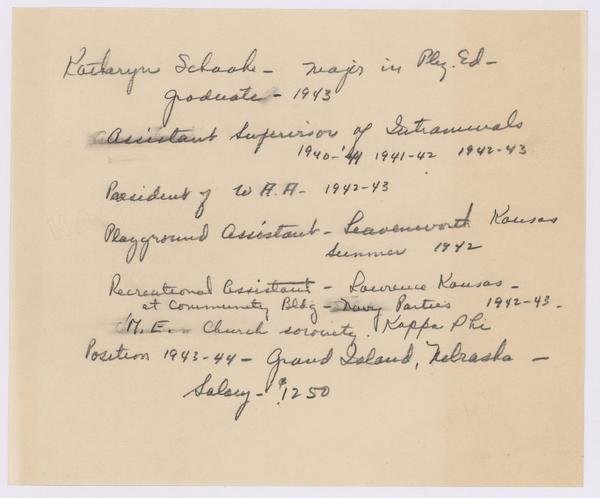 Katharyn Schaake - major in Phy. Ed -
graduate - 1943
Assistant Supervisor of Intramurals
1940-'41 1941-42 1942-43
President of W.A.A. - 1942-43
Playground Assistant - Leavenworth Kansas
summer 1942
Recreational Assistant - Lawrence Kansas -
at Community Bldg - Navy Parties 1942-43.
M.E. Church sorority. Kappa Phi
Position 1943-44 - Grand Island, Nebraska -
Salary - $1250